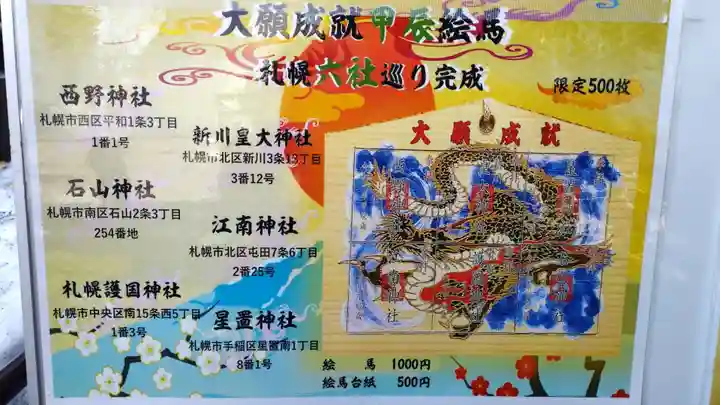 大願成就甲辰絵馬
札幌六社巡り完成
限定500枚
西野神社
札幌市西区平和1条3丁目
1番1号
新川皇大神社
札幌市北区新川3条13丁目
3番12号
石山神社
札幌市南区石山2条3丁目
254番地
江南神社
札幌市北区屯田7条6丁目
2番25号
札幌護国神社
札幌市中央区南15条西5丁目
1番3号
星置神社
札幌市手稲区星置南1丁目
8番1号
大願成就
絵　馬　1000円
絵馬台紙　500円